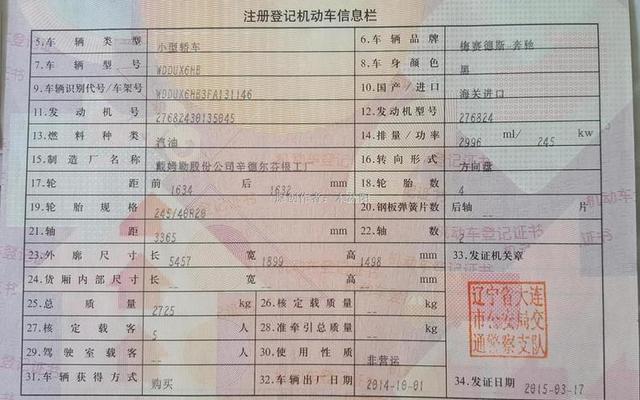 注册登记机动车信息栏
5.车辆类型 小型轿车 6.车辆品牌 梅赛德斯-奔驰
7.车辆型号 WDDUX6HB 8.车身颜色 黑
9.车辆识别代号/车架号 WDDUX6HB3FA131146 10.国产/进口 海关进口
11.发动机号 27682430135045 12.发动机型号 276824
13.燃料种类 汽油 14.排量/功率 2996 ml/ 245 kw
15.制造厂名称 戴姆勒股份公司辛德尔芬根工厂 16.转向形式 方向盘
17.轮距 前 1634 后 1632 mm 18.轮胎数 4
19.轮胎规格 245/40R20 20.钢板弹簧片数 后轴 -- 片
21.轴距 3365 mm 22.轴数 2
23.外廓尺寸 长 5457 宽 1899 高 1498 mm 33.发证机关章
24.货厢内部尺寸 长 -- 宽 -- 高 -- mm
25.总质量 2725 kg 26.核定载质量 -- kg
27.核定载客 5 人 28.准牵引总质量 -- kg
29.驾驶室载客 -- 人 30.使用性质 非营运
31.车辆获得方式 购买 32.车辆出厂日期 2014-10-01 34.发证日期 2015-03-17
辽宁省大连
市公安局交
通警察支队